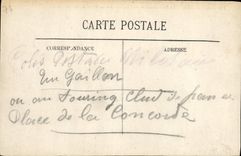 CARTE POSTALE
CORRESPONDANCE ADRESSE
Postale
Gaillon
ou au Touring Club de france
Place de la Concorde